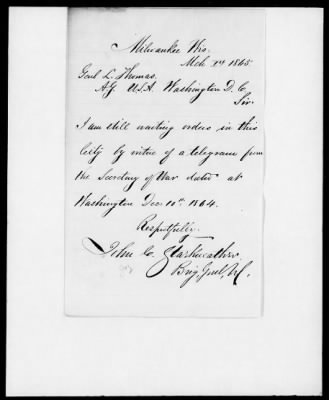 Milwaukee Wis.
Mch 1865
Genl L. Thomas,
A.G. U.S.A. Washington D.C,
Sir.
I am still waiting orders in this
City by virtue of a telegram from
the Secretary of War dated at
Washington Dec. 10th 1864.
Respectfully.
John C. Starkweather
Brig, Genl, Vol.